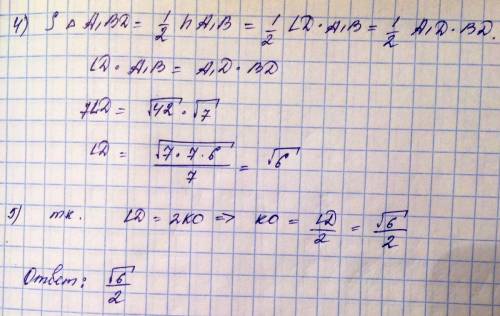 4) S△A₁BD = 1/2 hA₁B = 1/2 LD·A₁B = 1/2 A₁D·BD.
LD·A₁B = A₁D·BD
7LD = √42·√7
LD = √(7·7·6)/7 = √6
5) т.к. LD = 2KO => KO = LD/2 = √6/2
Ответ: √6/2